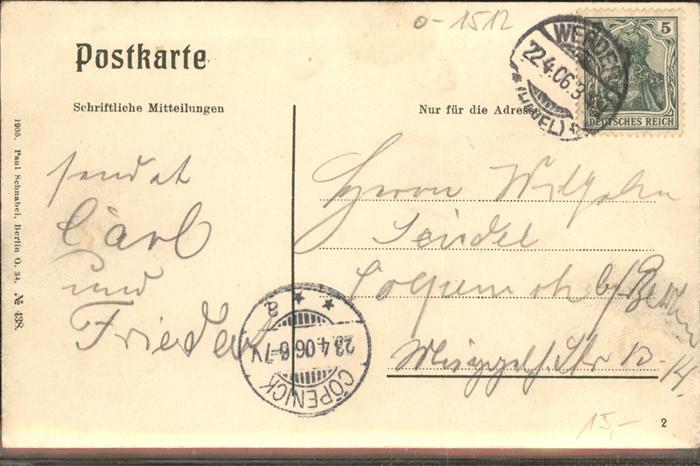 0-1512
Postkarte
WERDER
22.4.06.3
(HAVEL)
5
DEUTSCHES REICH
Schriftliche Mitteilungen
Nur für die Adresse
1905. Paul Schnabel, Berlin O. 34. № 438.
sendet
Carl
und
Frieda
Herrn Wilhelm
Seidel
b/Berlin
Str 13-14.
CÖPENICK
23.4.06.6-7V.
a
15,-
2